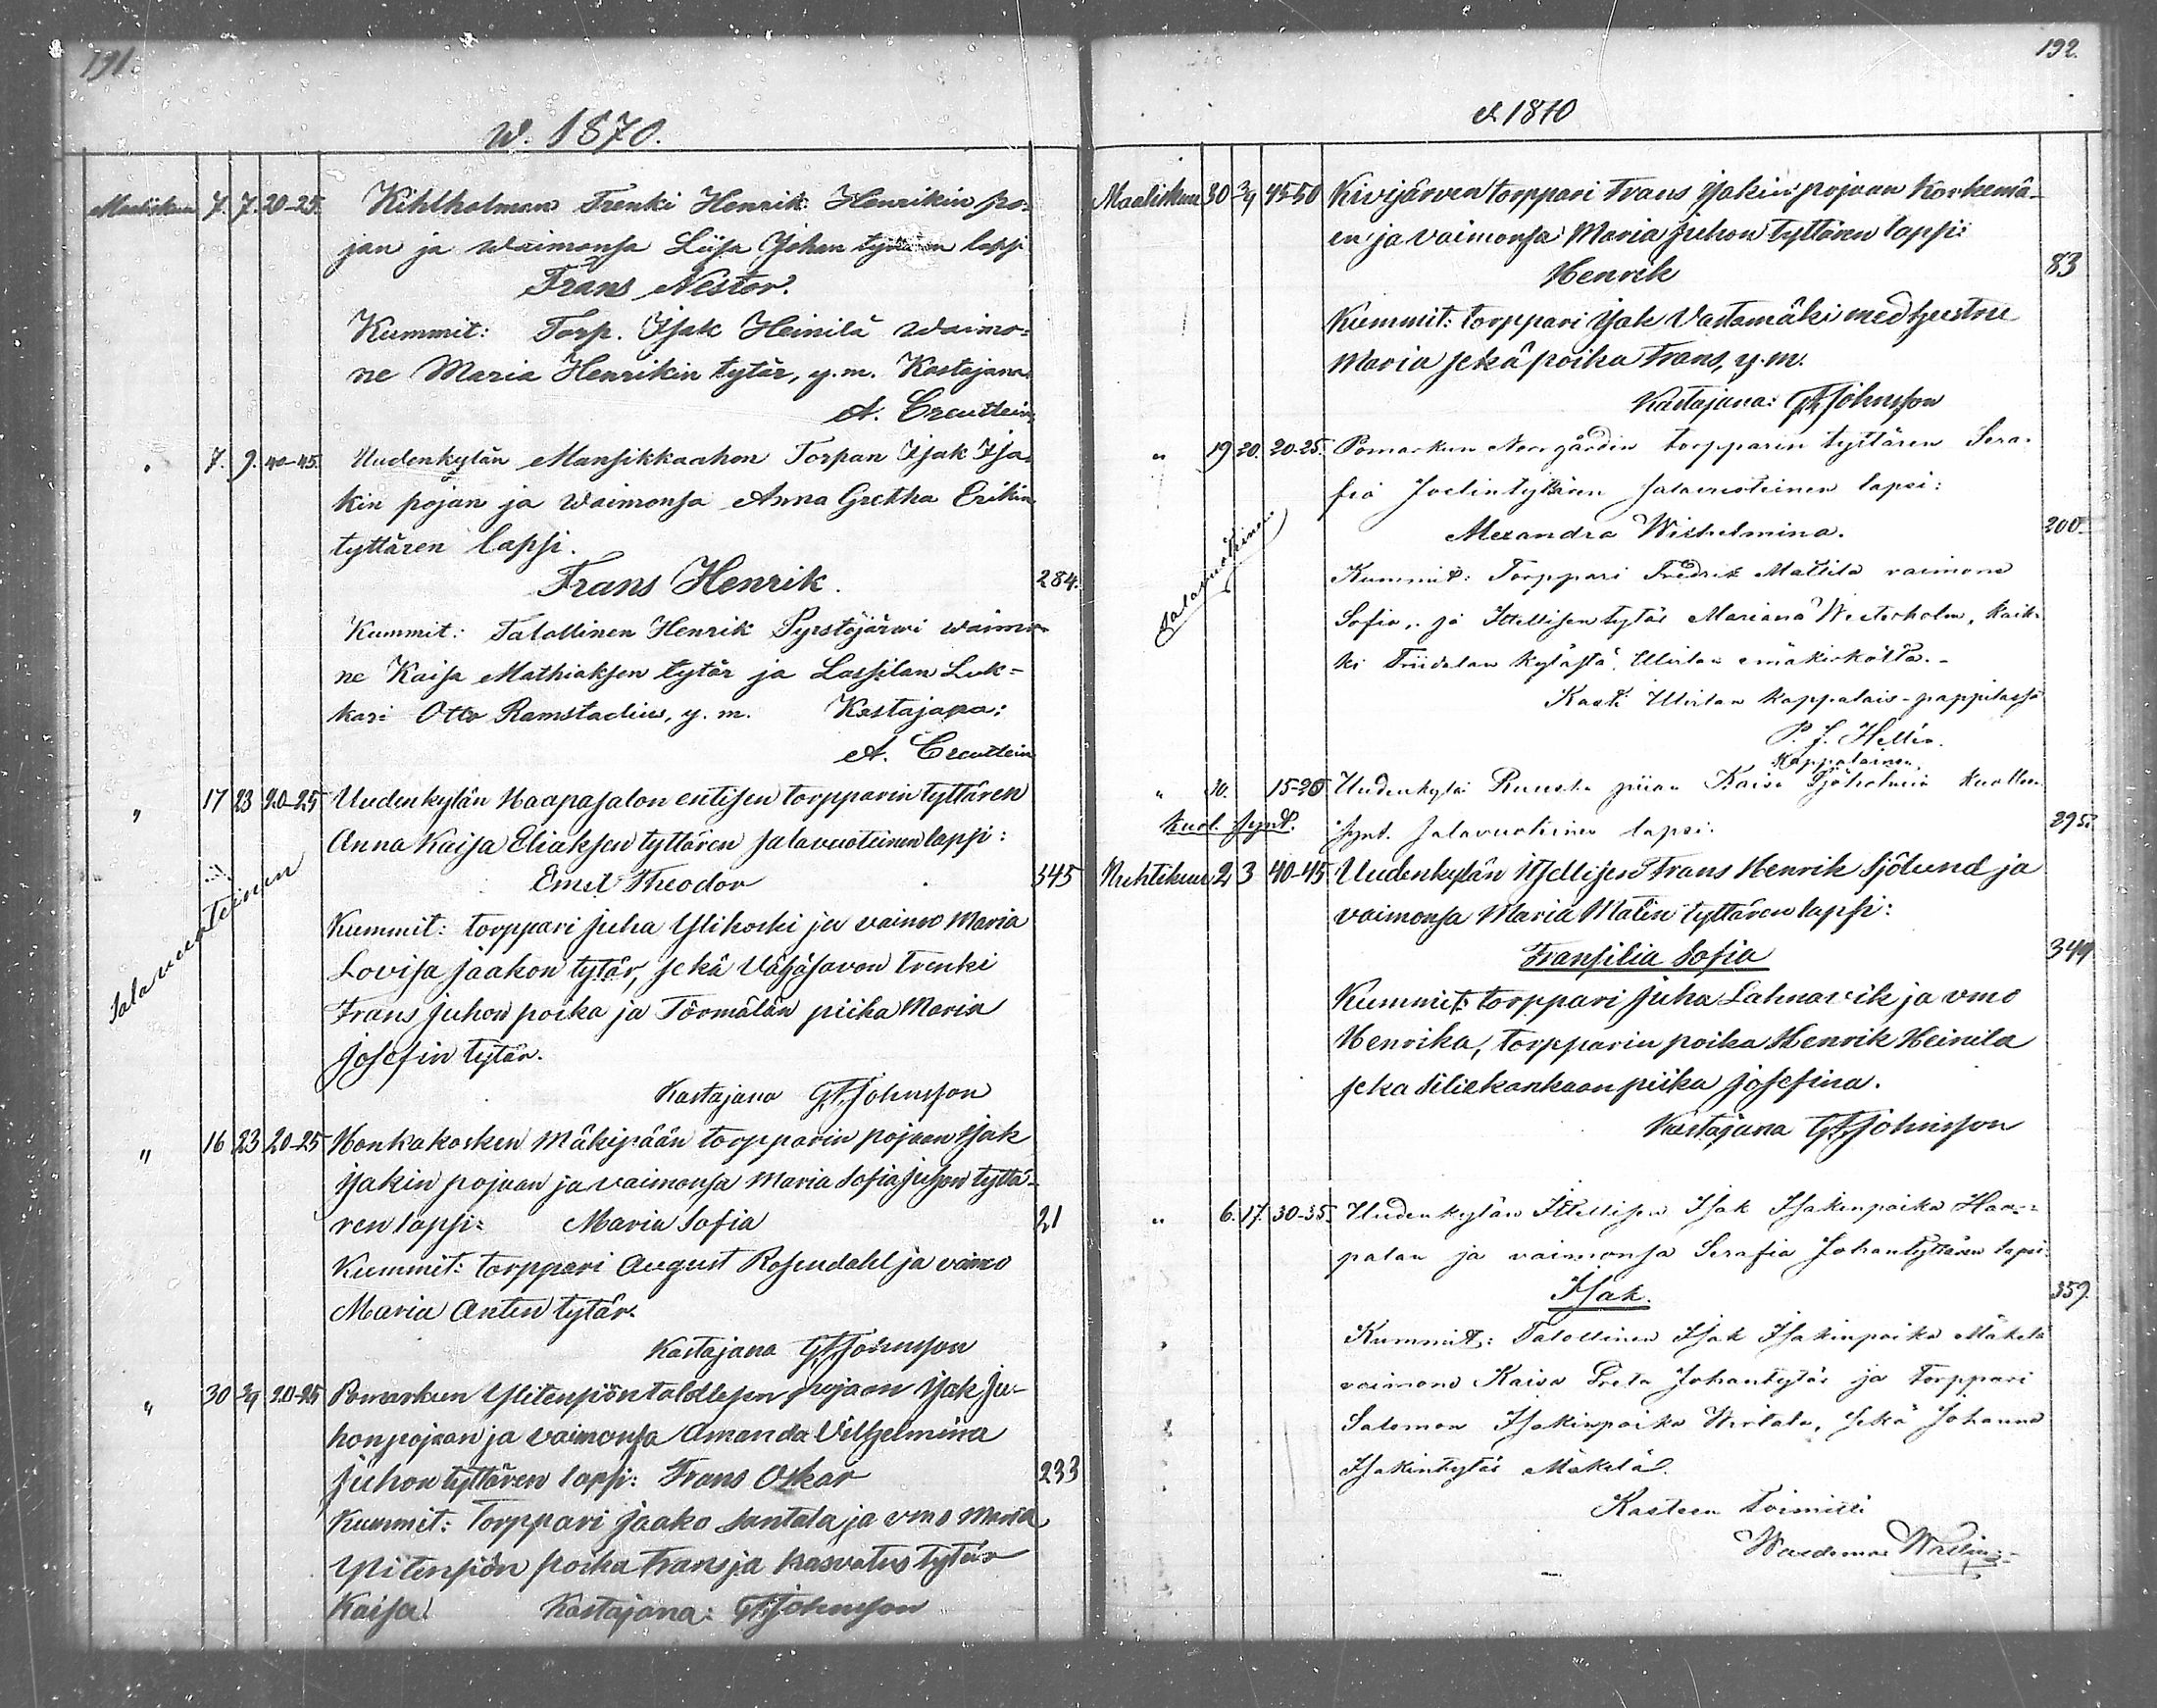 191.
W. 1870.
Maaliskuu 7. 7. 20-25. Kihlholman Trenki Henrik Henrikin po-
jan ja waimonsa Liisa Johan tyttären lapsi
Frans Nestor.
Kummit: Torp. Isak Heinilä waimo-
ne Maria Henrikin tytär, y.m. Kastajana
A. Creutlein
" 7. 9. 40-45. Uudenkylän Mansikkaahon Torpan Isak Isa-
kin pojan ja Waimonsa Anna Gretha Erikin
tyttären lapsi.
Frans Henrik. 284.
Kummit: Talollinen Henrik Pyrstöjärwi waimo-
ne Kaisa Mathiaksen tytär ja Lassilan Luk-
kari Otto Ramstadius, y.m. Kastajana:
A. Creutlein
" 17 23 20-25 Uudenkylän Haapasalon entisen torpparin tyttären
Anna Kaisa Eliaksen tyttären salavuoteinen lapsi:
Emil Theodor 345
Salavuoteinen
Kummit: torppari Juha Ylikoski ja vaimo Maria
Lovisa Jaakon tytär, sekä Väljäsavon trenki
Frans Juhon poika ja Törmälän piika Maria
Josefin tytär.
Kastajana G.A. Johnsson
" 16 23 20-25 Honkakosken Mäkipään torpparin pojan Isak
Isakin pojan ja vaimonsa Maria Sofia Juhon tyttä-
ren lapsi: Maria Sofia 21
Kummit: torppari August Rosendahl ja vaimo
Maria Anten tytär.
Kastajana G.A. Johnsson
" 30 3/4 20-25 Pomarkun Ylitenpiön talollisen pojan Isak Ju-
honpojan ja vaimonsa Amanda Vilhelmina
Juhon tyttären lapsi: Frans Oskar 233
Kummit: Torppari Jaako Santala ja vmo Maria
Ylitenpiön poika Frans ja kasvatus tytär
Kaisa. Kastajana: G.A. Johnsson
192.
1870
Maaliskuu 30 3/4 45-50 Kivijärven torppari Frans Isakin pojan Korkemä-
en ja vaimonsa Maria Juhon tyttären lapsi:
Henrik 83
Kummit: torppari Isak Vastamäki med hustru
Maria sekä poika Frans, y.m.
Kastajana: G.A. Johnsson
" 19 20. 20-25. Pomarkun Norrgårdin torpparin tyttären Sera-
fia Joelintyttären Salavuoteinen lapsi:
Alexandra Wilhelmina. 200
Salavuoteinen
Kummit: Torppari Fredrik Mattila vaimone
Sofia, ja Itsellisen tytär Mariana Westerholm, kaik-
ki Friidalan kylästä, Ulvilan emäkirkolta.
Kast. Ulvilan kappalais-pappilassa
P. J. Hellén.
Kappalainen.
" 30. 15-20 Uudenkylä Ruuska piian Kaisa Sjöholmin kuolleen
Kuol. synt. synt. Salavuoteinen lapsi. 295.
Huhtikuu 2 3 40-45 Uudenkylän Itsellisen Frans Henrik Sjölund ja
vaimonsa Maria Matin tyttären lapsi:
Fransilia Sofia 349
Kummit: torppari Juha Lahnavik ja vmo
Henrika, torpparin poika Henrik Heinila
seka Siliekankaan piika Josefina.
Kastajana G.A. Johnsson
" 6. 17. 30-35. Uudenkylän Itsellisen Isak Isakinpoika Haa-
palan ja vaimonsa Serafia Johantyttären lapsi:
Isak. 359.
Kummit: Talollinen Isak Isakinpoika Mäkelä
vaimone Kaisa Greta Johantytär ja Torppari
Salomon Isakinpoika Wirtala, sekä Johanna
Isakintytär Mäkelä.
Kasteen toimitti
Waldemar Wallin